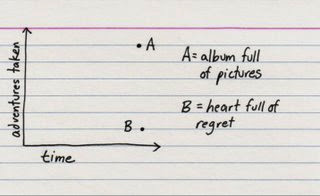 adventures taken
A
A = album full
of pictures
B
B = heart full of
regret
time